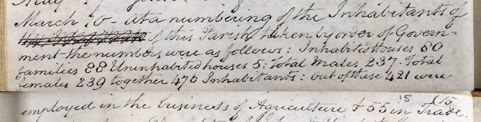 March 10 - At a numbering of the Inhabitants of
of this Parish taken by order of Govern-
ment the numbers were as follows: Inhabited houses 80
families 88 Uninhabited houses 5: Total Males 237. Total
females 239 together 476 Inhabitants: but of these 421 were
employed in the business of Agriculture & 55 in Trade.
15